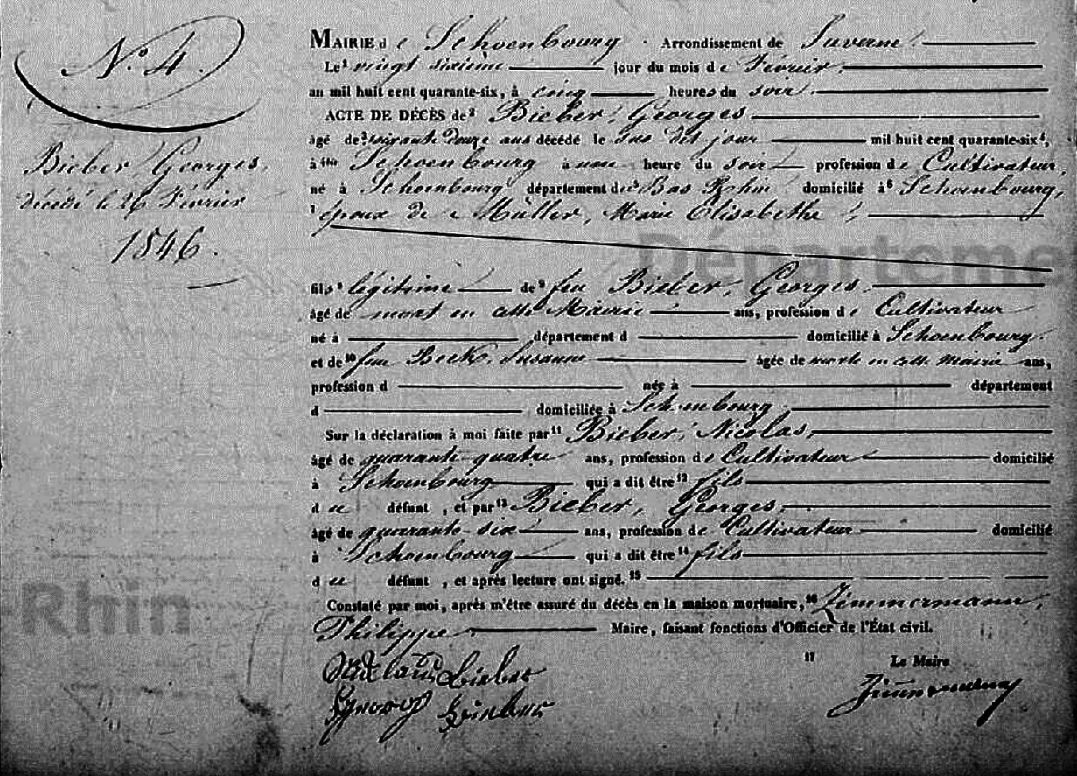 N.° 4.
Bieber Georges
décédé le 26 Février
1846.
MAIRIE de Schoenbourg Arrondissement de Saverne
Le¹ vingt sixième jour du mois de Février,
an mil huit cent quarante-six, à cinq heures du soir.
ACTE DE DÉCÈS de² Bieber, Georges
âgé de³ soixante douze ans décédé le sus dit jour mil huit cent quarante-six⁴,
à Schoenbourg à une heure du soir profession de Cultivateur,
né à Schoenbourg département du Bas Rhin domicilié à⁶ Schoenbourg,
⁷ époux de Müller, Marie Elisabethe,
fils⁸ légitime de⁹ feu Bieber, Georges,
âgé de mort en cette Mairie ans, profession de Cultivateur
né à département d domicilié à Schoenbourg.
et de¹⁰ feu Beck, Susanne âgée de morte en cette Mairie ans,
profession d née à département
d domiciliée à Schoenbourg.
Sur la déclaration à moi faite par¹¹ Bieber, Nicolas,
âgé de quarante-quatre ans, profession de Cultivateur domicilié
à Schoenbourg qui a dit être¹² fils
du défunt, et par¹³ Bieber, Georges,
âgé de quarante-six ans, profession de Cultivateur domicilié
à Schoenbourg qui a dit être¹⁴ fils
du défunt, et après lecture ont signé.¹⁵
Constaté par moi, après m'être assuré du décès en la maison mortuaire,¹⁶ Zimmermann,
Philippe Maire, faisant fonctions d'Officier de l'État civil.
¹⁷ Le Maire
Bieber
Georg Bieber
Zimmermann
Département
-Rhin